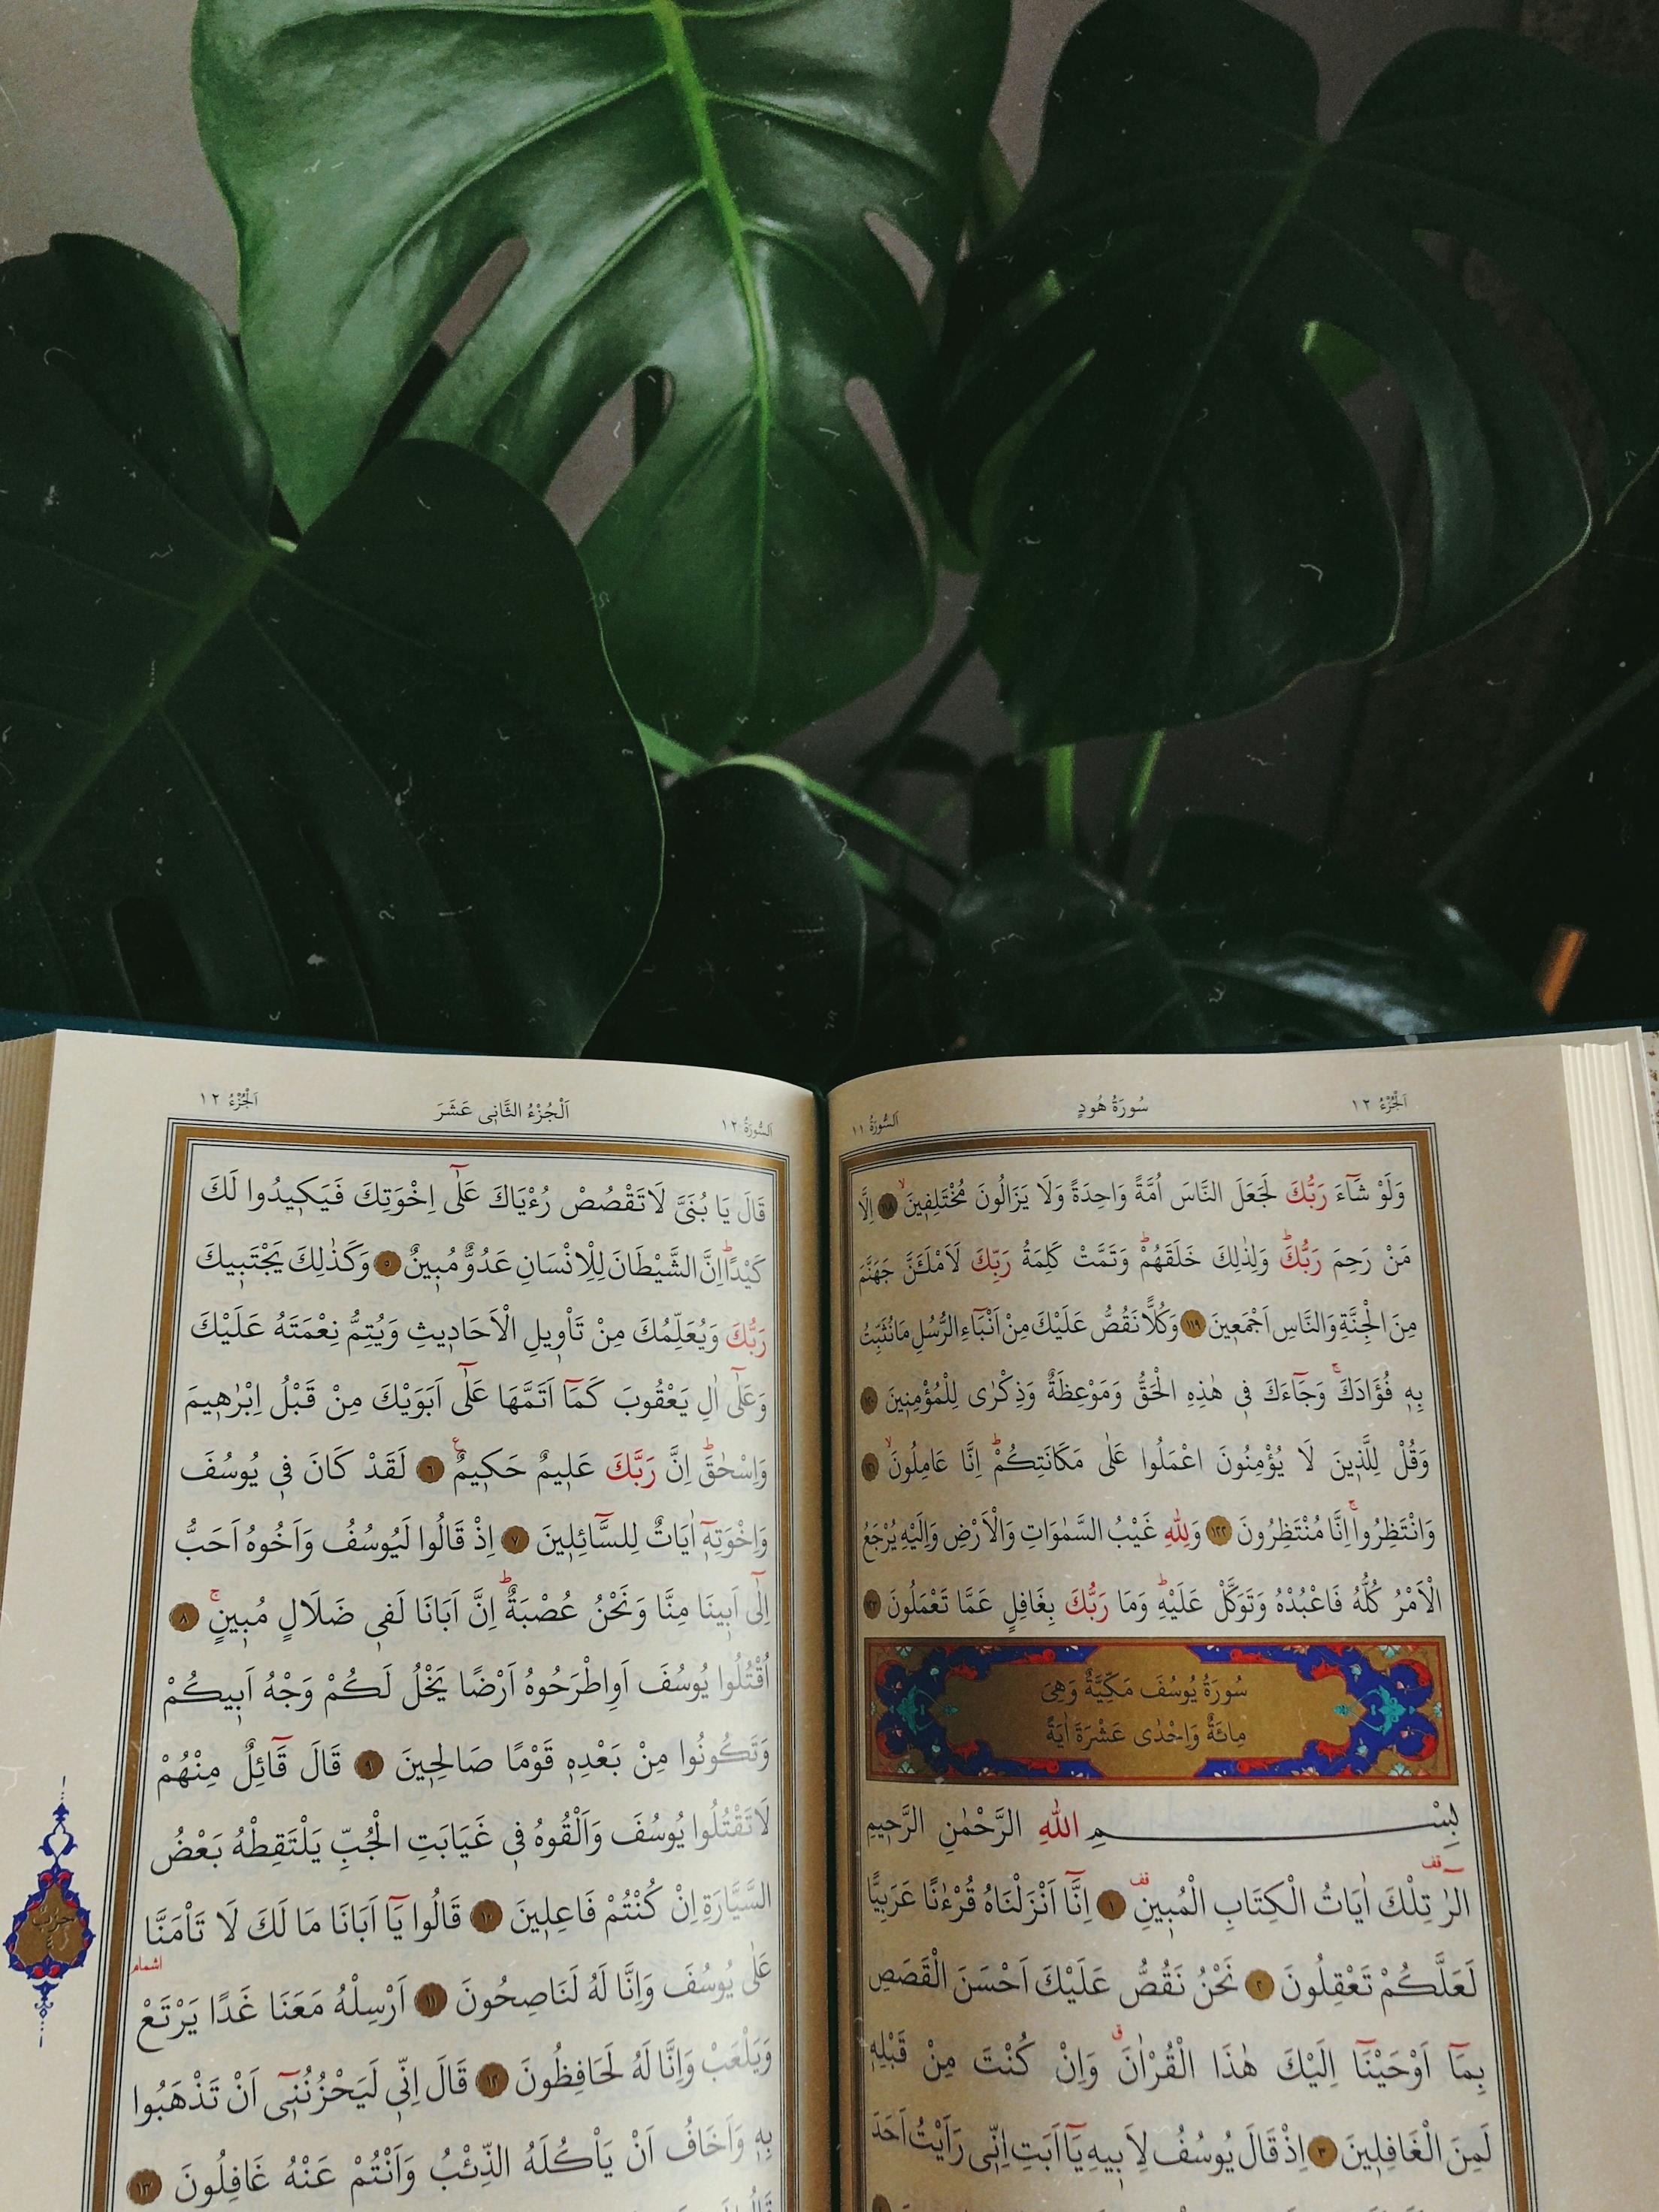 اَلْجُزْءُ ١٢
سُورَةُ هُودٍ
اَلسُّورَةُ ١١
وَلَوْ شَٓاءَ رَبُّكَ لَجَعَلَ النَّاسَ اُمَّةً وَاحِدَةً وَلَا يَزَالُونَ مُخْتَلِف۪ينَۙ ١١٨ اِلَّا
مَنْ رَحِمَ رَبُّكَۜ وَلِذٰلِكَ خَلَقَهُمْۜ وَتَمَّتْ كَلِمَةُ رَبِّكَ لَاَمْلَـَٔنَّ جَهَنَّمَ
مِنَ الْجِنَّةِ وَالنَّاسِ اَجْمَع۪ينَ ١١٩ وَكُلًّا نَقُصُّ عَلَيْكَ مِنْ اَنْبَٓاءِ الرُّسُلِ مَا نُثَبِّتُ
بِه۪ فُؤٰادَكَۚ وَجَٓاءَكَ ف۪ي هٰذِهِ الْحَقُّ وَمَوْعِظَةٌ وَذِكْرٰى لِلْمُؤْمِن۪ينَ ١٢٠
وَقُلْ لِلَّذ۪ينَ لَا يُؤْمِنُونَ اعْمَلُوا عَلٰى مَكَانَتِكُمْۜ اِنَّا عَامِلُونَۙ ١٢١
وَانْتَظِرُواۚ اِنَّا مُنْتَظِرُونَ ١٢٢ وَلِلّٰهِ غَيْبُ السَّمٰوَاتِ وَالْاَرْضِ وَاِلَيْهِ يُرْجَعُ
الْاَمْرُ كُلُّهُ فَاعْبُدْهُ وَتَوَكَّلْ عَلَيْهِۜ وَمَا رَبُّكَ بِغَافِلٍ عَمَّا تَعْمَلُونَ ١٢٣
سُورَةُ يُوسُفَ مَكِّيَّةٌ وَهِيَ
مِائَةٌ وَاِحْدٰى عَشْرَةَ اٰيَةً
بِسْمِ اللّٰهِ الرَّحْمٰنِ الرَّح۪يمِ
الٓرٰ۠ تِلْكَ اٰيَاتُ الْكِتَابِ الْمُب۪ينِ۠ ١ اِنَّٓا اَنْزَلْنَاهُ قُرْءٰنًا عَرَبِيًّا
لَعَلَّكُمْ تَعْقِلُونَ ٢ نَحْنُ نَقُصُّ عَلَيْكَ اَحْسَنَ الْقَصَصِ
بِمَٓا اَوْحَيْنَٓا اِلَيْكَ هٰذَا الْقُرْاٰنَۗ وَاِنْ كُنْتَ مِنْ قَبْلِه۪
لَمِنَ الْغَافِل۪ينَ ٣ اِذْ قَالَ يُوسُفُ لِاَب۪يهِ يَٓا اَبَتِ اِنّ۪ي رَاَيْتُ اَحَدَ
اَلسُّورَةُ ١٢
اَلْجُزْءُ الثَّان۪ي عَشَرَ
اَلْجُزْءُ ١٢
قَالَ يَا بُنَيَّ لَا تَقْصُصْ رُءْيَاكَ عَلٰٓى اِخْوَتِكَ فَيَك۪يدُوا لَكَ
كَيْدًاۜ اِنَّ الشَّيْطَانَ لِلْاِنْسَانِ عَدُوٌّ مُب۪ينٌ ٥ وَكَذٰلِكَ يَجْتَب۪يكَ
رَبُّكَ وَيُعَلِّمُكَ مِنْ تَأْو۪يلِ الْاَحَاد۪يثِ وَيُتِمُّ نِعْمَتَهُ عَلَيْكَ
وَعَلٰٓى اٰلِ يَعْقُوبَ كَمَٓا اَتَمَّهَا عَلٰٓى اَبَوَيْكَ مِنْ قَبْلُ اِبْرٰه۪يمَ
وَاِسْحٰقَۜ اِنَّ رَبَّكَ عَل۪يمٌ حَك۪يمٌ۟ ٦ لَقَدْ كَانَ ف۪ي يُوسُفَ
وَاِخْوَتِه۪ٓ اٰيَاتٌ لِلسَّٓائِل۪ينَ ٧ اِذْ قَالُوا لَيُوسُفُ وَاَخُوهُ اَحَبُّ
اِلٰٓى اَب۪ينَا مِنَّا وَنَحْنُ عُصْبَةٌۜ اِنَّ اَبَانَا لَف۪ي ضَلَالٍ مُب۪ينٍۚ ٨
اُقْتُلُوا يُوسُفَ اَوِاطْرَحُوهُ اَرْضًا يَخْلُ لَكُمْ وَجْهُ اَب۪يكُمْ
وَتَكُونُوا مِنْ بَعْدِه۪ قَوْمًا صَالِح۪ينَ ٩ قَالَ قَٓائِلٌ مِنْهُمْ
لَا تَقْتُلُوا يُوسُفَ وَاَلْقُوهُ ف۪ي غَيَابَتِ الْجُبِّ يَلْتَقِطْهُ بَعْضُ
السَّيَّارَةِ اِنْ كُنْتُمْ فَاعِل۪ينَ ١٠ قَالُوا يَٓا اَبَانَا مَا لَكَ لَا تَأْمَنَّا
اشمام
عَلٰى يُوسُفَ وَاِنَّا لَهُ لَنَاصِحُونَ ١١ اَرْسِلْهُ مَعَنَا غَدًا يَرْتَعْ
وَيَلْعَبْ وَاِنَّا لَهُ لَحَافِظُونَ ١٢ قَالَ اِنّ۪ي لَيَحْزُنُن۪ٓي اَنْ تَذْهَبُوا
بِه۪ وَاَخَافُ اَنْ يَأْكُلَهُ الذِّئْبُ وَاَنْتُمْ عَنْهُ غَافِلُونَ ١٣
حزب